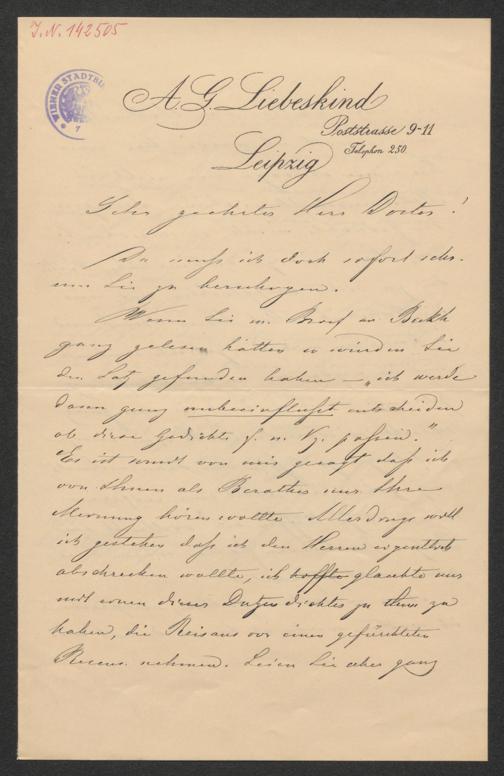 I. N. 142505
WIENER STADTBI
7
A. G. Liebeskind
Poststrasse 9-11
Telephon 250
Leipzig
Sehr geehrter Herr Doctor!
Da muß ich doch sofort schr.
um Sie zu beruhigen.
Wenn Sie m. Brief an
ganz gelesen hätten so würden Sie
den Satz gefunden haben – „ich werde
dann ganz unbeeinflußt entscheiden
ob diese Gedichte f. m. Vg. passen."
Es ist somit von mir gesagt daß ich
von Ihnen als Berather nur Ihre
Meinung hören wollte. Allerdings will
ich gestehen daß ich den Herrn eigentlich
abschrecken wollte, ich hoffte glaubte nur
mit einem dieser Dutzendichter zu thun zu
haben, die Reisaus vor einem gefürchteten
Recens. nehmen. Seien Sie aber ganz